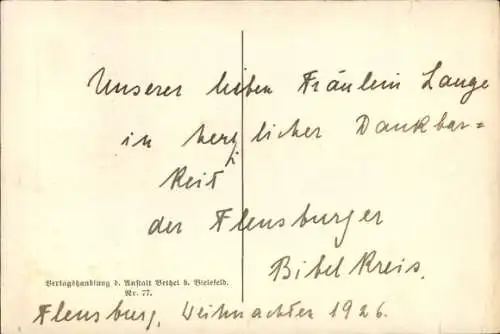 Unserer lieben Fräulein Lange
in herzlicher Dankbar=
keit
der Flensburger
Bibelkreis.
Verlagshandlung d. Anstalt Bethel b. Bielefeld.
Nr. 77.
Flensburg, Weihnachten 1926.